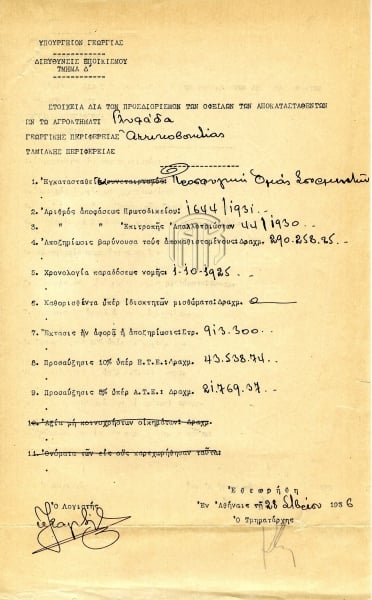 ΥΠΟΥΡΓΕΙΟΝ ΓΕΩΡΓΙΑΣ
ΔΙΕΥΘΥΝΣΙΣ ΕΠΟΙΚΙΣΜΟΥ
ΤΜΗΜΑ Δ'
ΣΤΟΙΧΕΙΑ ΔΙΑ ΤΟΝ ΠΡΟΣΔΙΟΡΙΣΜΟΝ ΤΩΝ ΟΦΕΙΛΩΝ ΤΩΝ ΑΠΟΚΑΤΑΣΤΑΘΕΝΤΩΝ
ΕΝ ΤΩ ΑΓΡΟΚΤΗΜΑΤΙ Γλυφάδα
ΓΕΩΡΓΙΚΗΣ ΠΕΡΙΦΕΡΕΙΑΣ Αττικοβοιωτίας
ΤΑΜΙΑΚΗΣ ΠΕΡΙΦΕΡΕΙΑΣ
1. Ἐγκατασταθεῖς Προσφυγική Ὁμάς
2. Ἀριθμός ἀποφάσεως Πρωτοδικείου: 1644/1931
3. " " Ἐπιτροπῆς Ἀπαλλοτριώσεων 44/1930
4. Ἀποζημίωσις βαρύνουσα τούς ἀποκαθισταμένους: Δραχμ. 290.258.25
5. Χρονολογία παραδόσεως νομῆς: 1-10-1925
6. Καθορισθέντα ὑπέρ ἰδιοκτητῶν μισθώματα: Δραχμ.
7. Ἔκτασις ἥν ἀφορᾷ ἡ ἀποζημίωσις: Στρ. 913.300
8. Προσαύξησις 10% ὑπέρ Ε.Τ.Ε.: Δραχμ. 43.538.74
9. Προσαύξησις ὑπέρ Α.Τ.Ε: Δραχμ. 21.769.37
10. Ἀξία μή κοινοχρήστων οἰκημάτων: Δραχμ.
11. Ὀνόματα τῶν εἰς οὕς παρεχωρήθησαν ταῦτα:
Ἐθεωρήθη
Ὁ Λογιστής
Ἐν Ἀθήναις τῇ 28 1936
Ὁ Τμηματάρχης